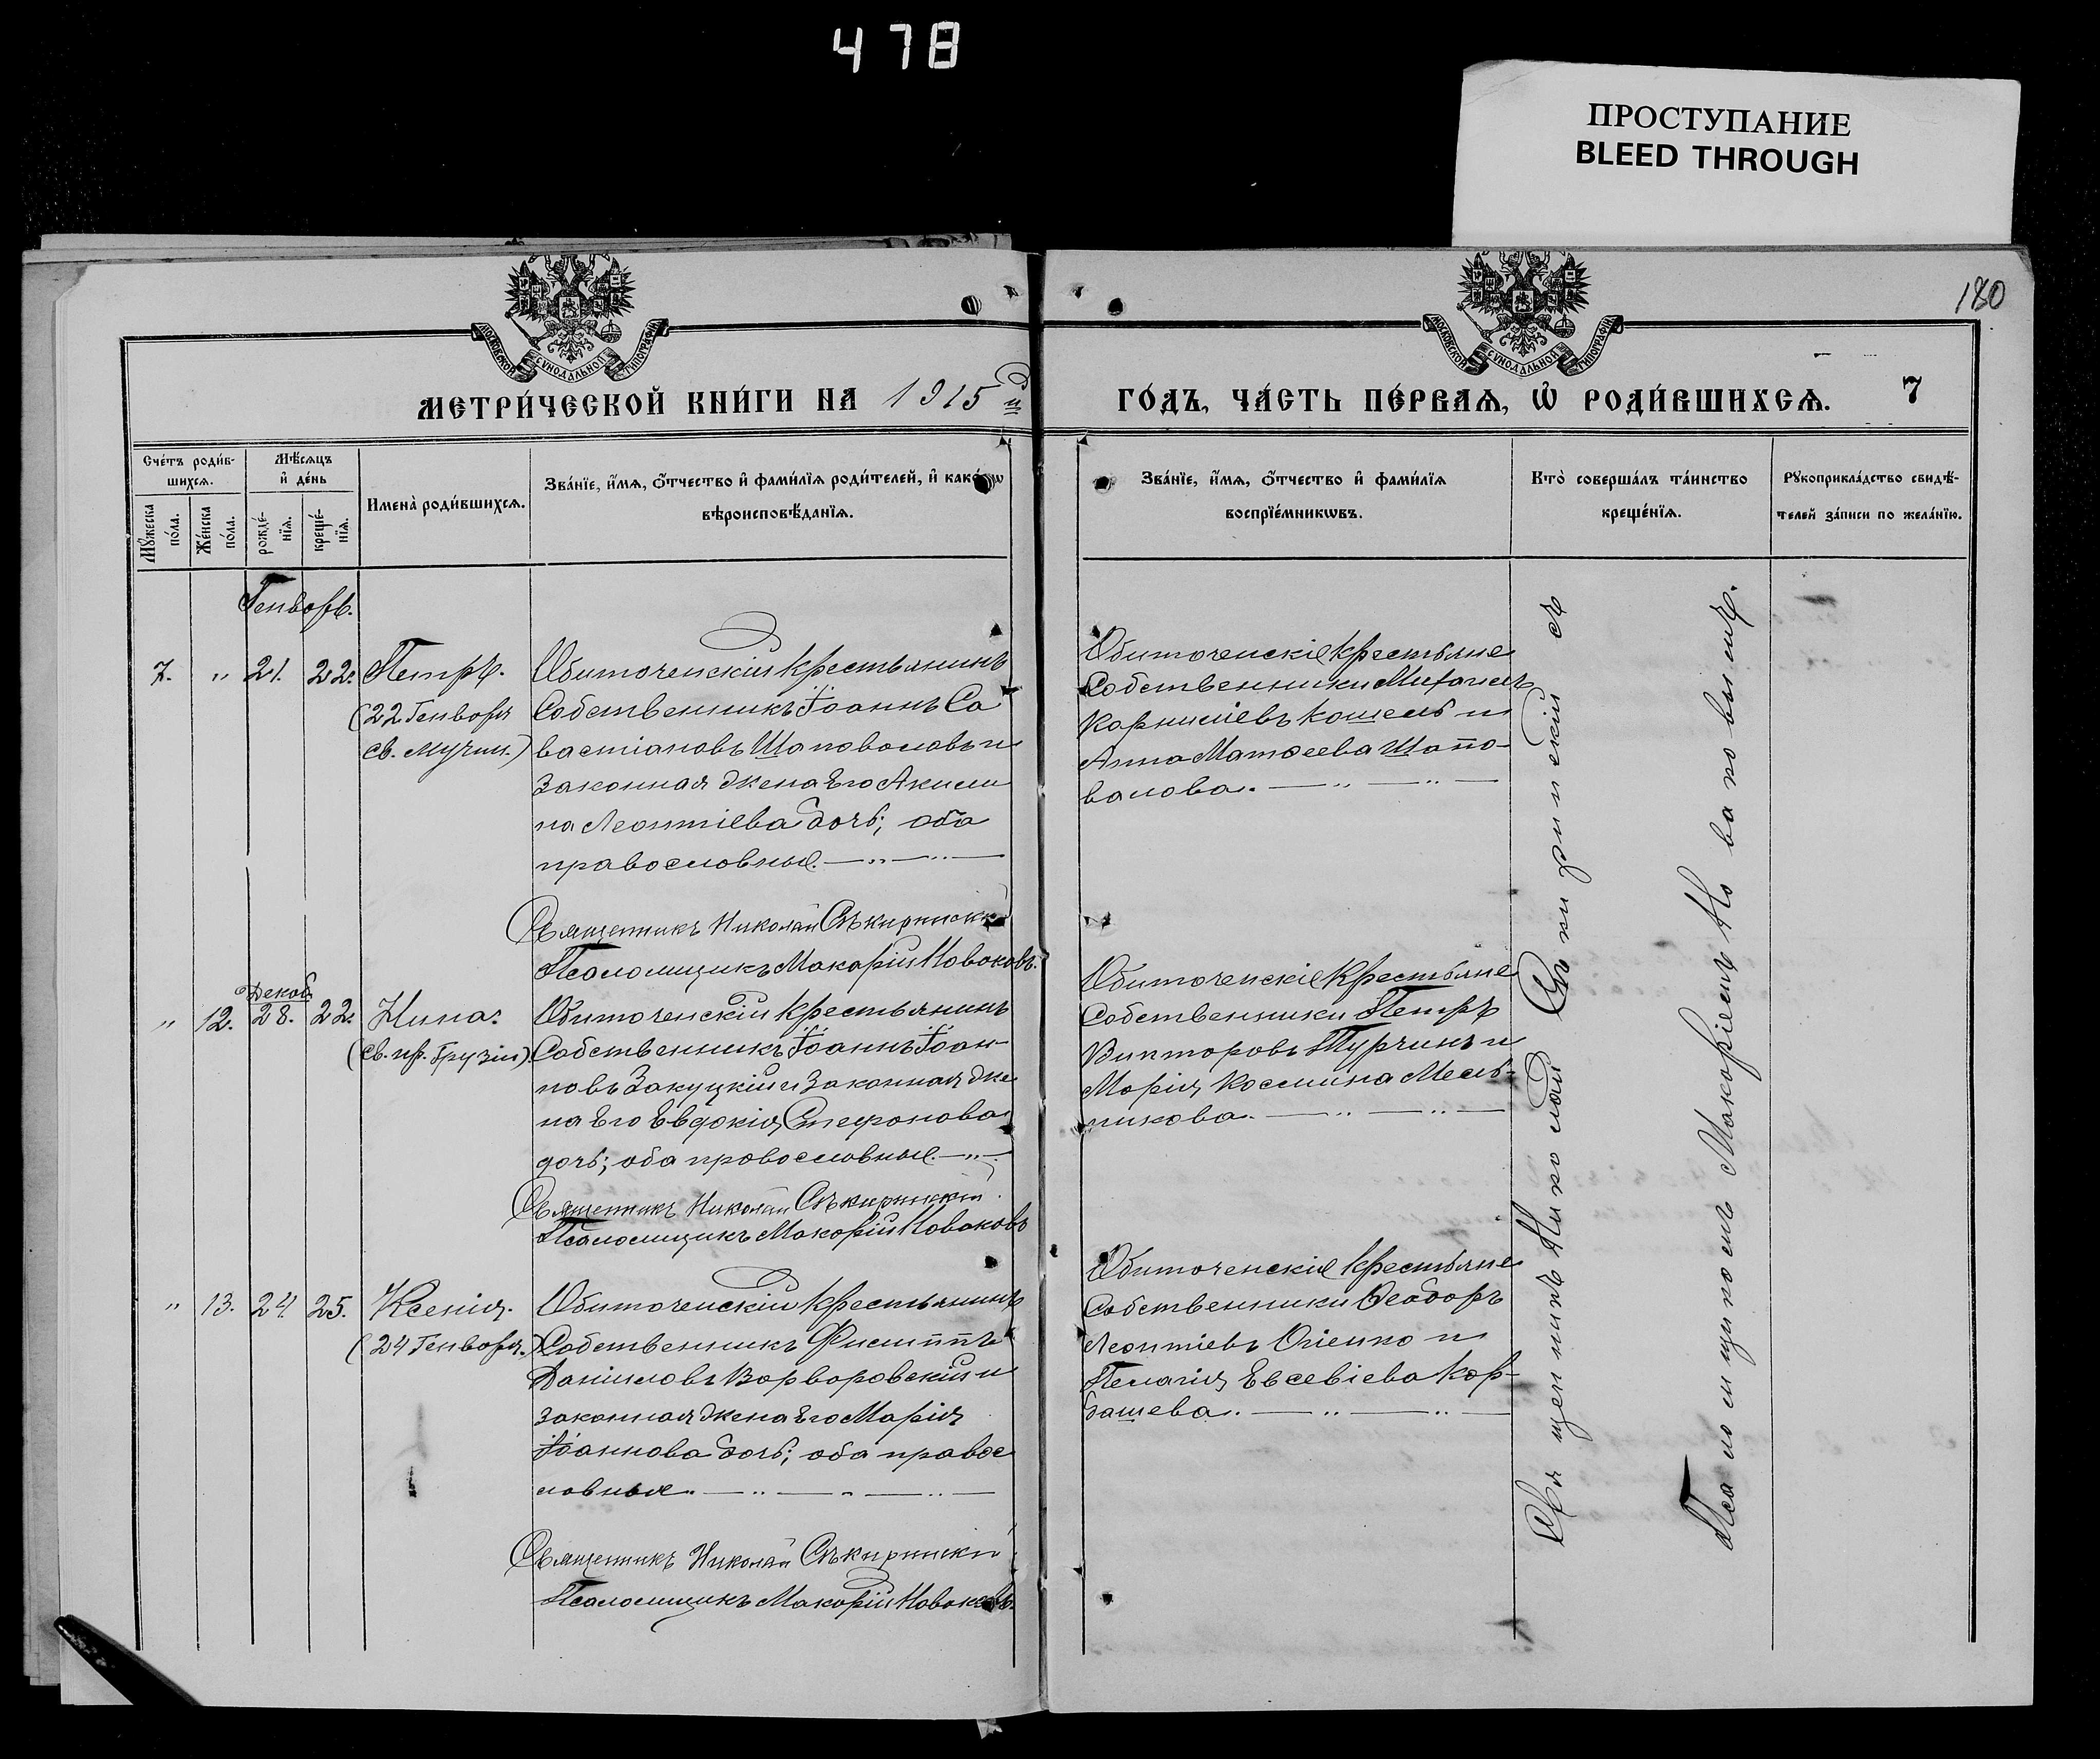 478
ПРОСТУПАНИЕ
BLEED THROUGH
180
МОСКОВСКОЙ СѴНОДАЛЬНОЙ ТИПОГРАФІИ
МОСКОВСКОЙ СѴНОДАЛЬНОЙ ТИПОГРАФІИ
МЕТРИ́ЧЕСКОЙ КНИ́ГИ НА 1915 й
ГО́ДЪ, ЧА́СТЬ ПЕ́РВАѦ, Ѽ РОДИ́ВШИХСѦ. 7
Сче́тъ роди́в-
шихсѧ.
Мꙋ́жеска по́ла.
Же́нска по́ла.
Мѣ́сѧцъ
и҆ де́нь
рожде́-
нїѧ.
креще́-
нїѧ.
Имена̀ роди́вшихсѧ.
Зва́нїе, и҆́мѧ, ѻ҆́тчество и҆ фами́лїѧ роди́телей, и҆ како́гѡ
вѣроисповѣ́данїѧ.
Зва́нїе, и҆́мѧ, ѻ҆́тчество и҆ фами́лїѧ
воспрїе́мникѡвъ.
Кто̀ соверша́лъ та́инство
креще́нїѧ.
Рꙋкоприкла́дство свидѣ́-
телей за́писи по жела́нїю.
Генварь.
7. " 21. 22. Петръ.
(22 Генваря
св. мучен.)
Обиточенскій крестьянинъ
Собственникъ Іоаннъ Са
вастіановъ Шаповаловъ и
законная жена Его Акили
на Леонтіева дочь; оба
православные.
Священникъ Николай Сѣкиринскій
Псаломщикъ Макарій Новаковъ.
Обиточенскіе крестьяне
Собственники Михаилъ
Корниліевъ Кошель и
Анна Матѳеева Шапо-
валова.
Декаб.
" 12. 28. 22. Нина.
(Св. пр. Грузіи).
Обиточенскій крестьянинъ
Собственникъ Іоаннъ Іоан-
новъ Закуцкій и законная же
на Его Евдокія Стефанова
дочь; оба православные.
Священникъ Николай Сѣкиринскій
Псаломщикъ Макарій Новаковъ
Обиточенскіе крестьяне
Собственники Петръ
Викторовъ Турчинъ и
Марія Космина Мель-
никова.
" 13. 24. 25. Ксенія.
(24 Генваря.)
Обиточенскій крестьянинъ
Собственникъ Филиппъ
Даніиловъ Варваровскій и
законная жена Его Марія
Іоаннова дочь; оба правос
лавные.
Священникъ Николай Сѣкиринскій
Псаломщикъ Макарій Новаковъ.
Обиточенскіе крестьяне
Собственники Ѳеодоръ
Леонтіевъ Оленко и
Пелагія Евсевіева Кар-
башева.
Священникъ Николай Сѣкиринскій съ
Псаломщикомъ Макаріемъ Новаковымъ.